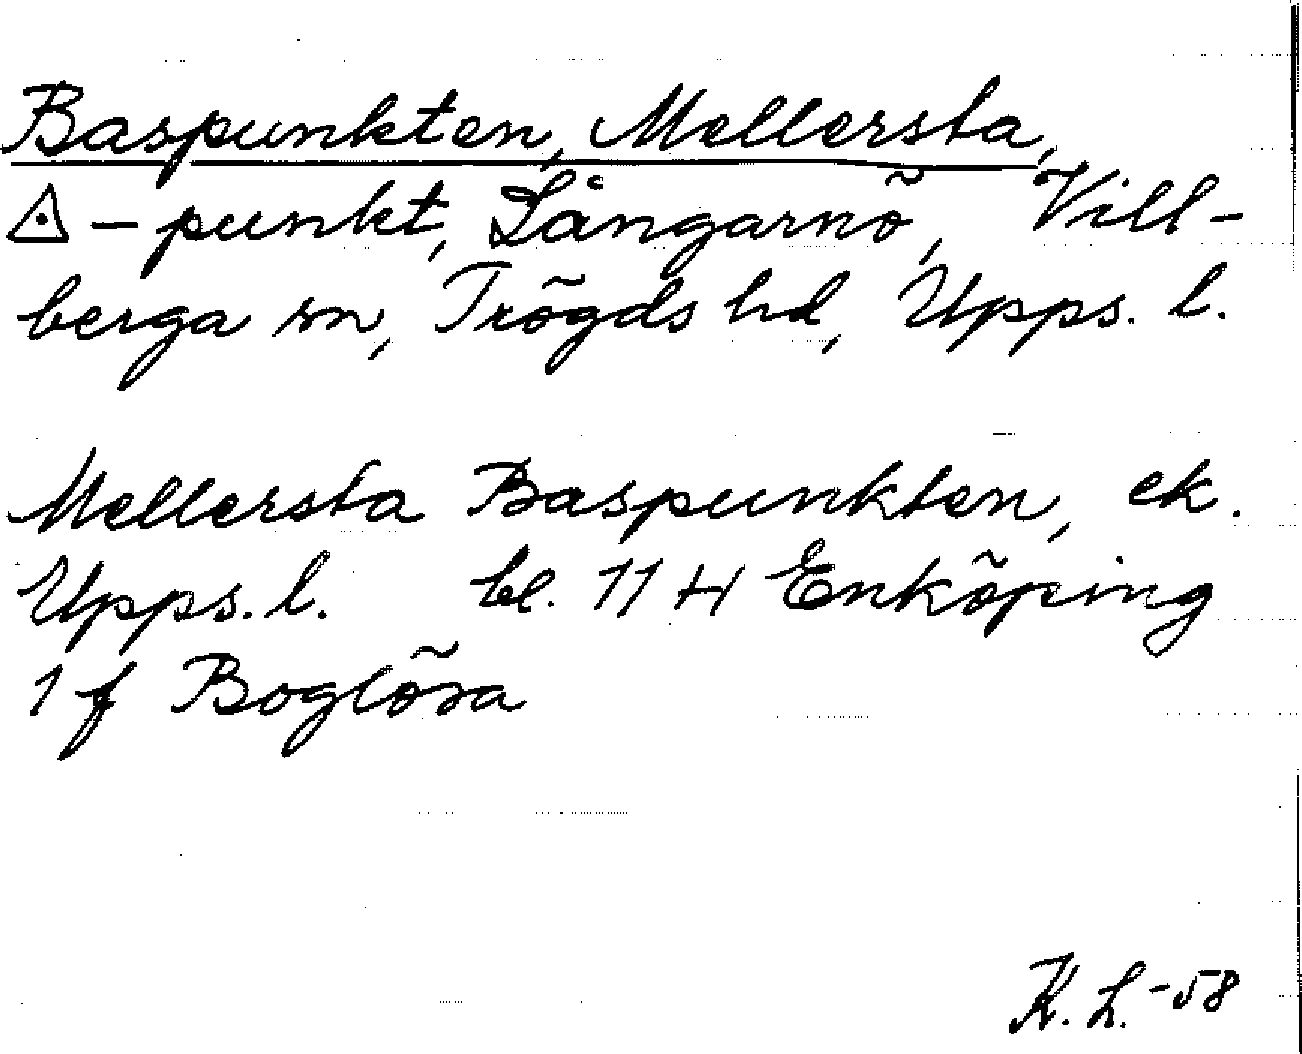 Baspunkten, Mellersta,
△ – punkt, Långarnö, Vill-
berga sn, Trögds hd, Upps. l.
Mellersta Baspunkten, ek.
Upps. l. bl. 11 H Enköping
1 f Boglösa
K. L. -58